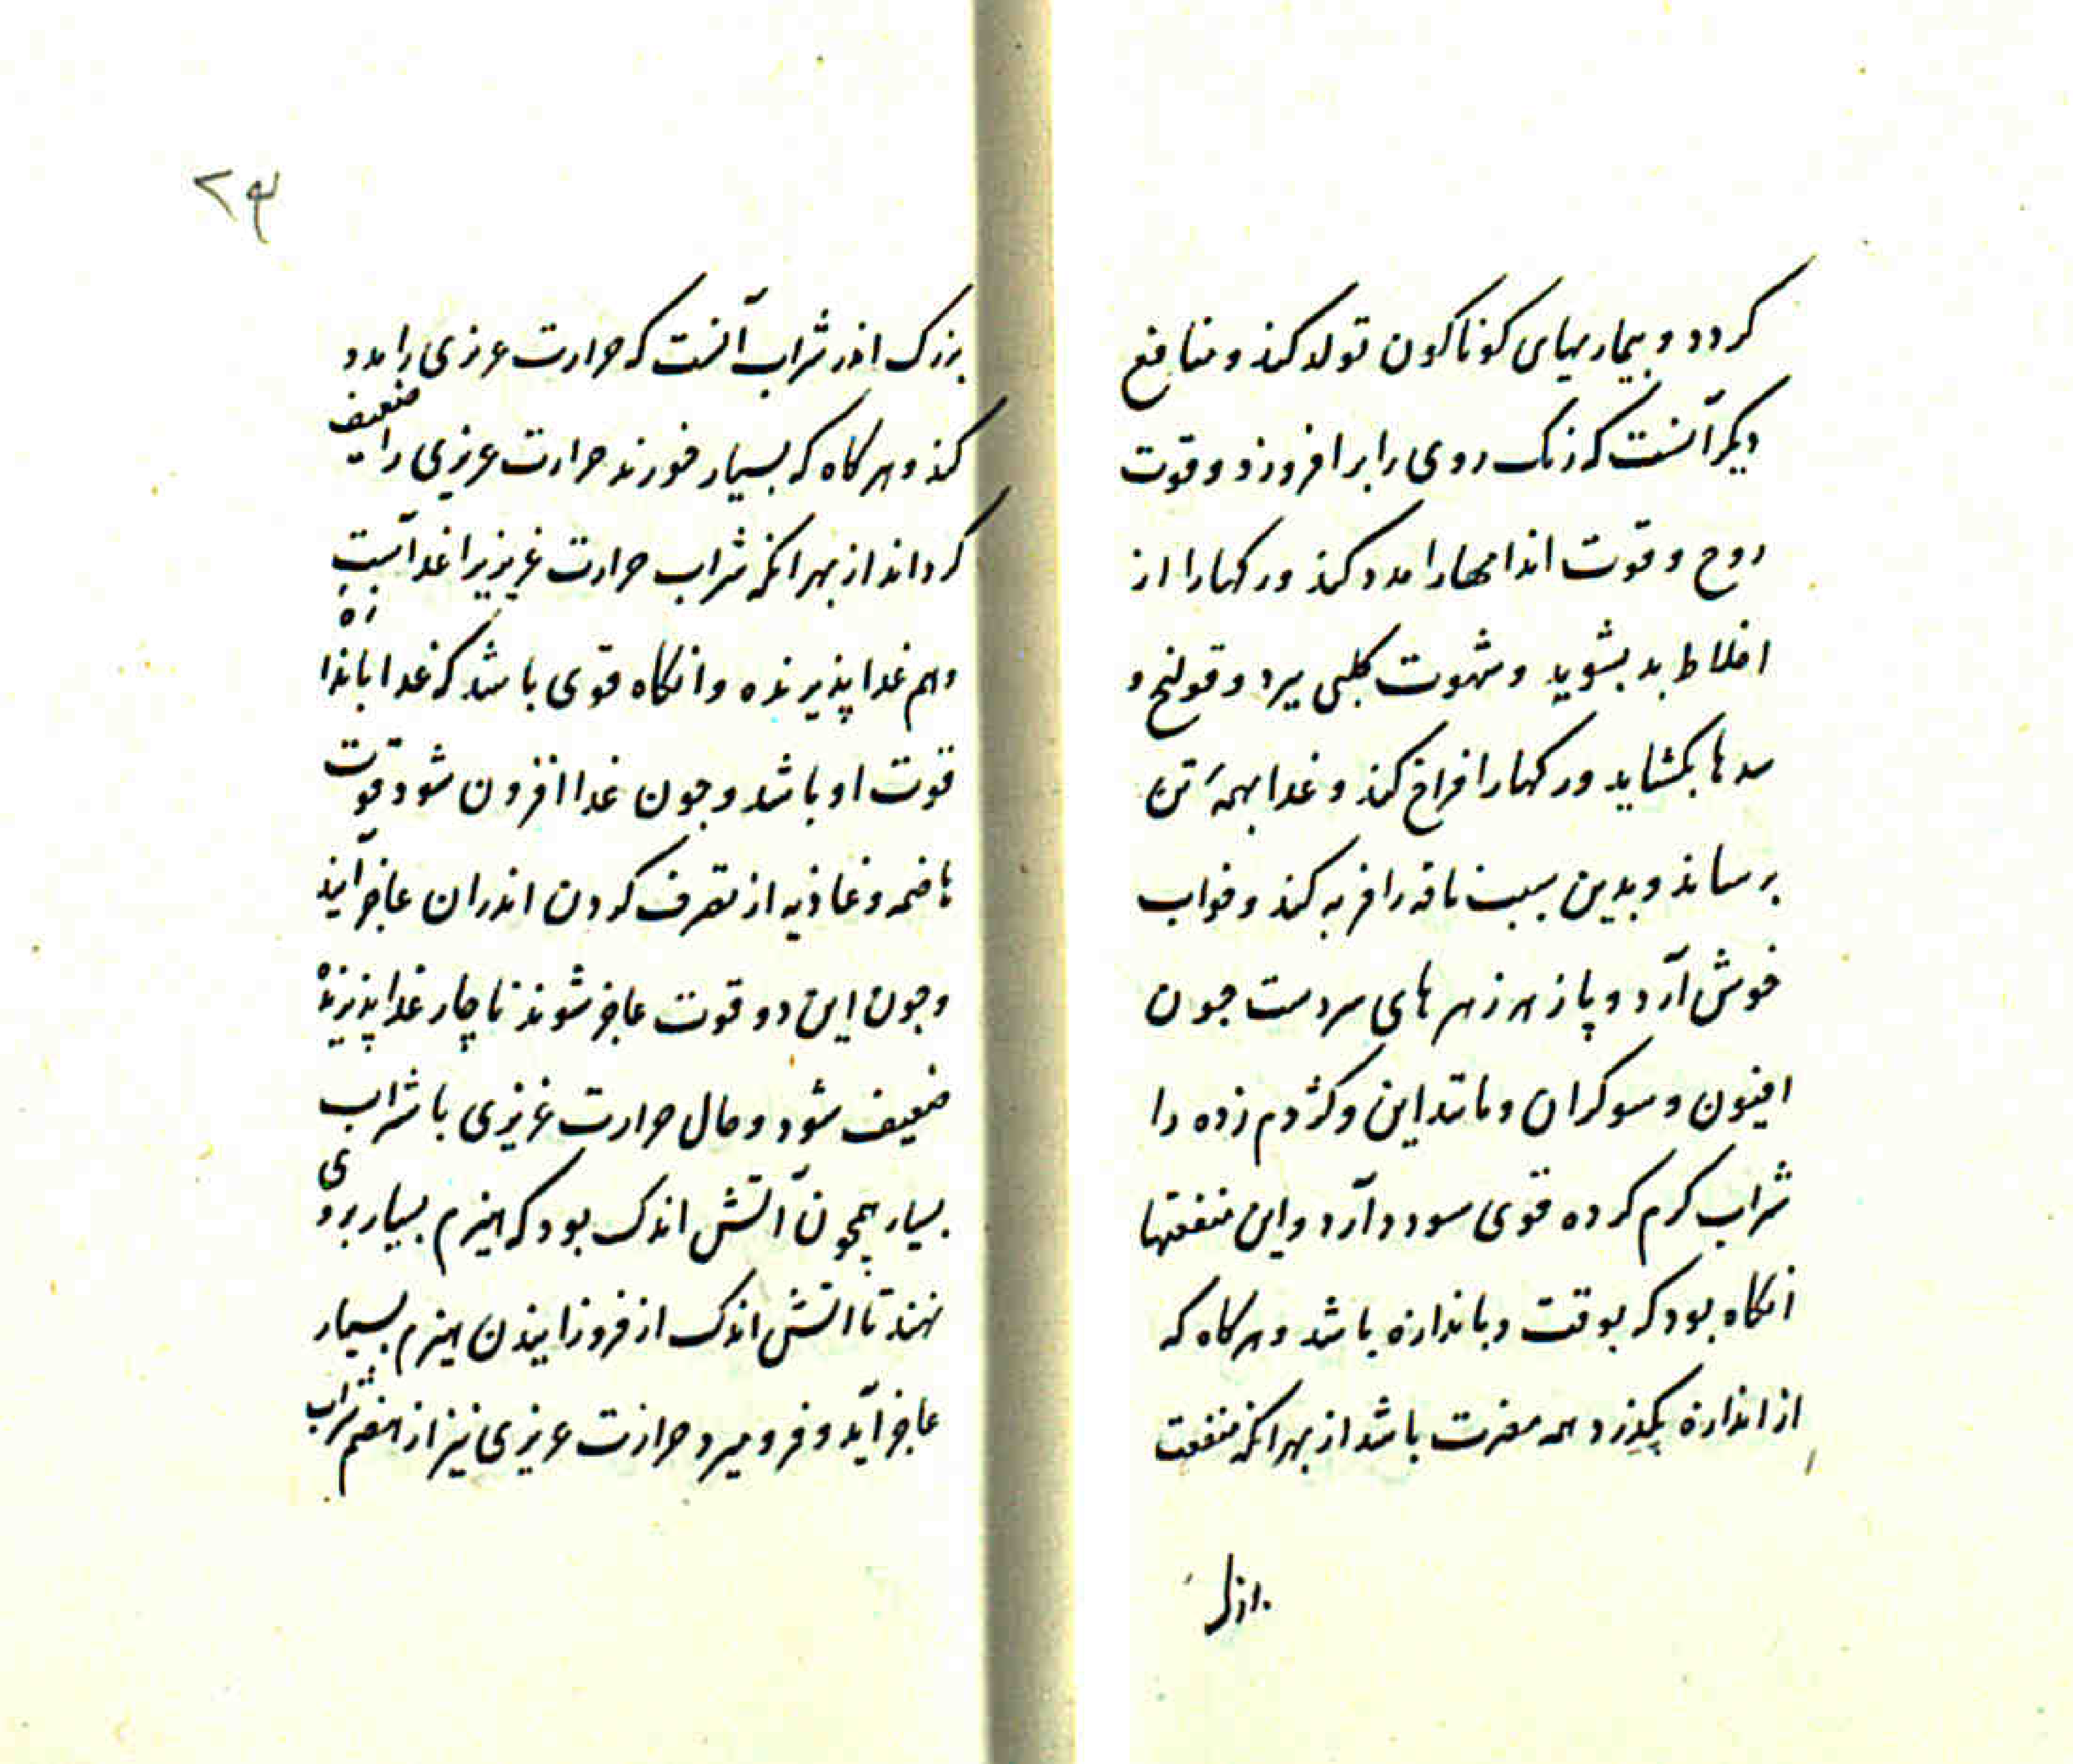 كردد و بیماریهای كوناكون تولد كند و منافع
دیكر آنست كه رنك روی را برافروزد و قوت
روح و قوت اندامها را مدد كند و ركها را از
اخلاط بد بشوید و شهوت كلبی ببرد و قولنج و
سدها بكشاید و ركها را فراخ كند و غدا بهمهٔ تن
برساند و بدین سبب ناقه را فربه كند و خواب
خوش آرد و پازهر زهرهای سردست جون
افیون و سوكران و مانند این و كژدم زده را
شراب كرم كرده قوی سود دارد و این منفعتها
انكاه بود كه بوقت و باندازه باشد و هركاه كه
از اندازه بكذرد همه مضرت باشد از بهر انكه منفعت
بزرك
۲۳
بزرك اندر شراب آنست كه حرارت عزیزی را مدد
كند و هركاه كه بسیار خورند حرارت عزیزی را ضعیف
كرداند از بهر انكه شراب حرارت غریزیرا غداآست
و هم غدا پذیرنده و انكاه قوی باشد كه غدا باندازه
قوت او باشد و جون غدا افزون شود قوت
هاضمه و غاذیه از تصرف كردن اندران عاجز آیند
و جون این دو قوت عاجز شوند ناچار غدا پذیرنده
ضعیف شود و حال حرارت غریزی با شراب
بسیار همچون آتش اندك بود كه هیزم بسیار بروی
نهند تا اتش اندك از فروزانیدن هیزم بسیار
عاجز آید و فرو میرد حرارت عریزی نیز از هضم شراب